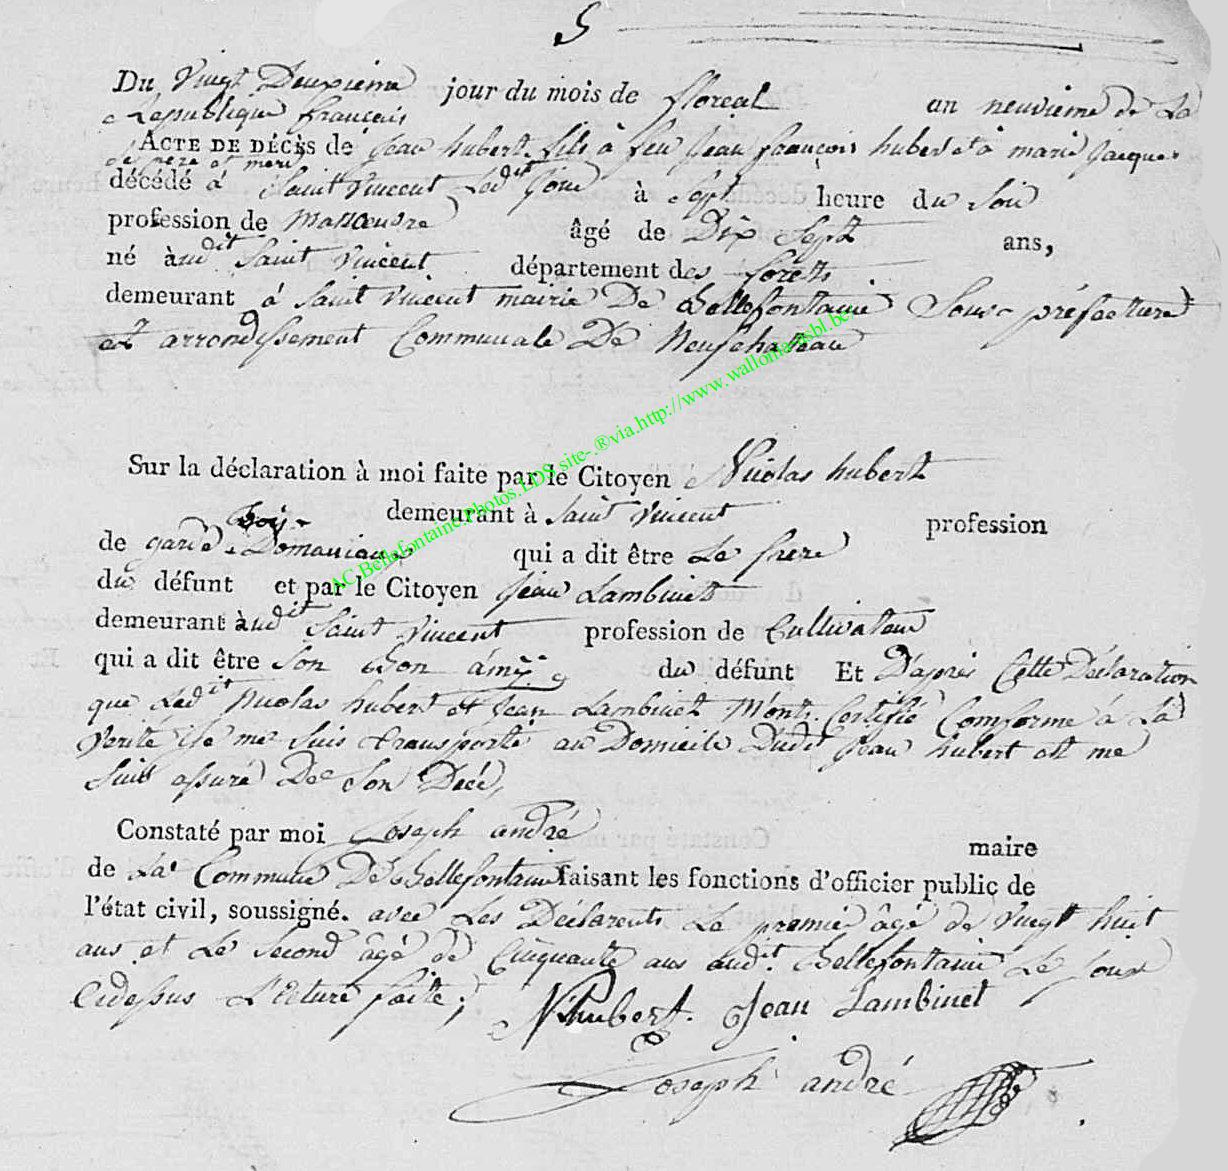 5
Du Vingt Deuxieme jour du mois de floreal an neuvieme de La
Republique français
ACTE DE DÉCÈS de Jean hubert fils à feu Jean françois hubert et à marie Jacques
de pere et mere
décédé à Saint Vincent Ledit Jour à Sept heure du Soir
profession de manoeuvre âgé de Dix Sept ans,
né àudit Saint Vincent département des forets
demeurant à Saint Vincent mairie De Bellefontaine Sous préfecture
et arrondissement Communale De Neufchateau
Sur la déclaration à moi faite par le Citoyen Nicolas hubert
demeurant à Saint Vincent profession
bois
de garde Domaniaux qui a dit être Le frere
du défunt et par le Citoyen Jean Lambinet
demeurant àudit Saint Vincent profession de Cultivateur
qui a dit être Son bon ámÿ du défunt Et D'aprés Cette Déclaration
que Ledit Nicolas hubert et Jean Lambinet M'ont Certifié Comforme á La
Verité je me Suis transporté au Domicile Dudit Jean hubert et me
Suis assuré De Son Décé,
Constaté par moi Joseph andré maire
de La Commune De Bellefontaine faisant les fonctions d'officier public de
l'état civil, soussigné. avec Les Déclarents Le premier âgé de Vingt huit
ans et Le Second âgé de Cinquante ans audit Bellefontaine Le Jour
Cidessus L'ecture faite;
N hubert. Jean Lambinet
Joseph andré
AC.Bellefontaine.Photos.LDS.site-®via.http://www.wallomansbl.be